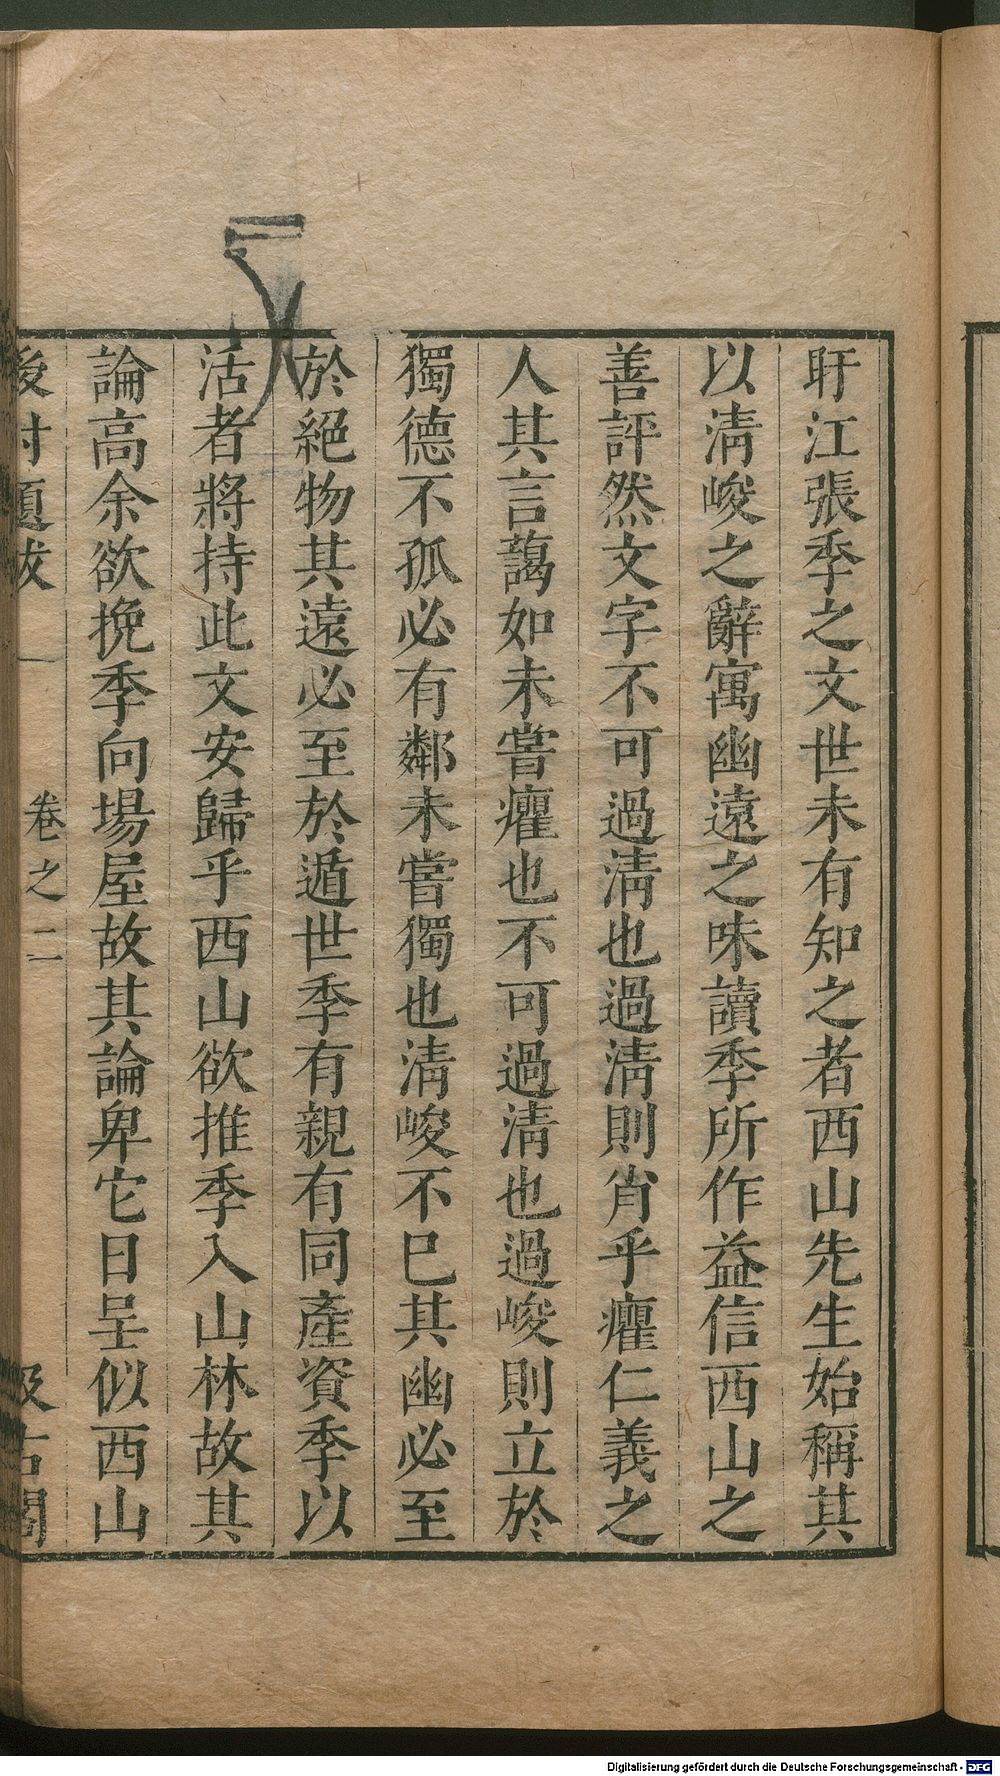 盱江張季之文世未有知之者西山先生始稱其
以淸峻之辭寓幽遠之味讀季所作益信西山之
善評然文字不可過淸也過淸則肖乎癯仁義之
人其言藹如未嘗癯也不可過淸也過峻則立於
獨德不孤必有鄰未嘗獨也淸峻不已其幽必至
於絕物其遠必至於遁世季有親有同產資季以
活者將持此文安歸乎西山欲推季入山林故其
論高余欲挽季向場屋故其論卑它日呈似西山
後村題跋 卷之二 汲古閣
Digitalisierung gefördert durch die Deutsche Forschungsgemeinschaft - DFG